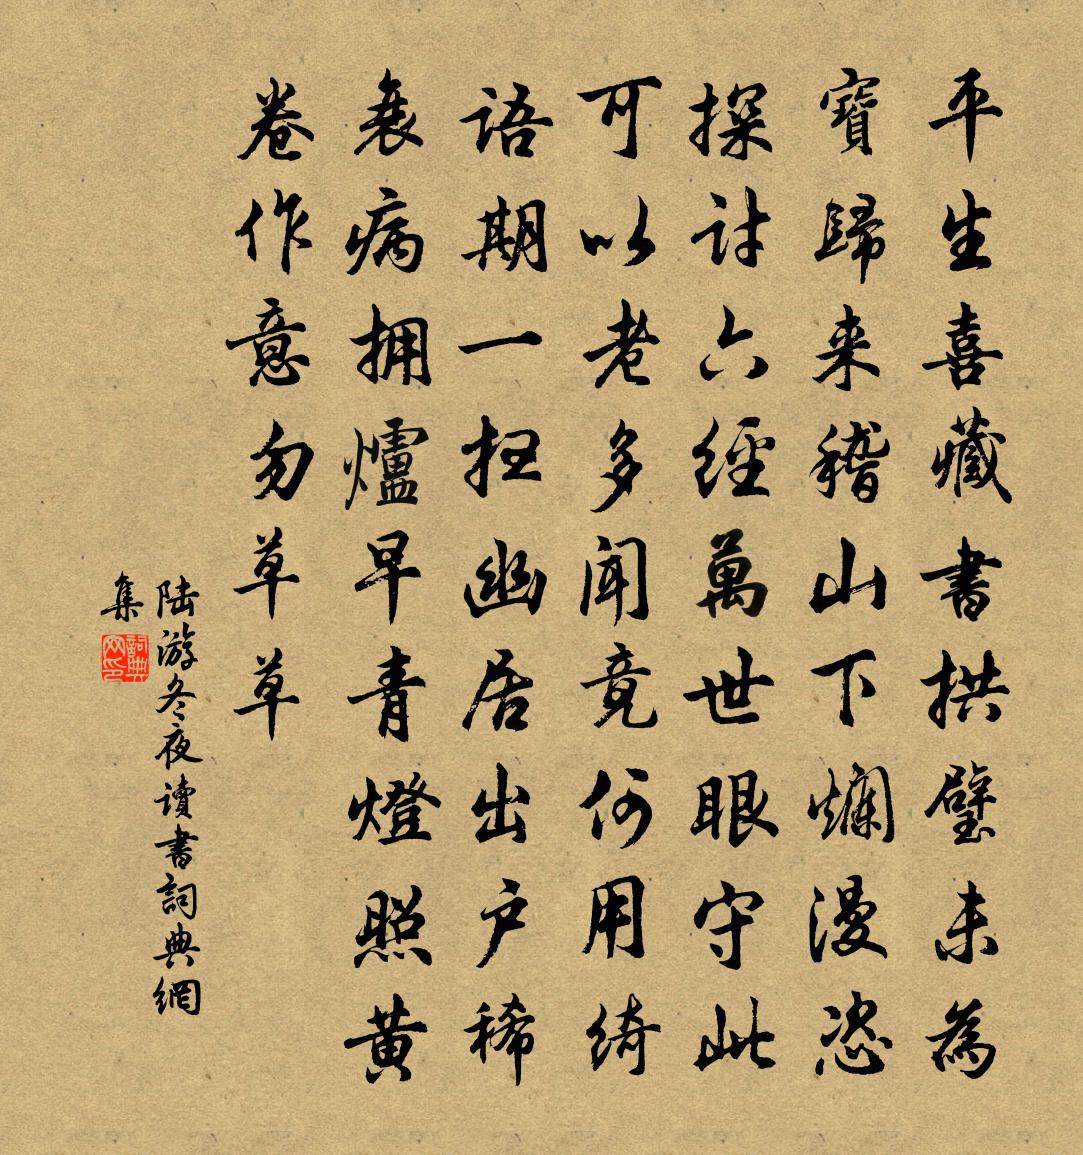 平生喜藏書拱璧未為
寶歸来稽山下爛漫恣
探討六經萬世眼守此
可以老多聞竟何用綺
語期一扫幽居出户稀
衰病拥爐早青燈照黄
卷作意勿草草
陆游冬夜讀書詞典網
集
詞典
网印